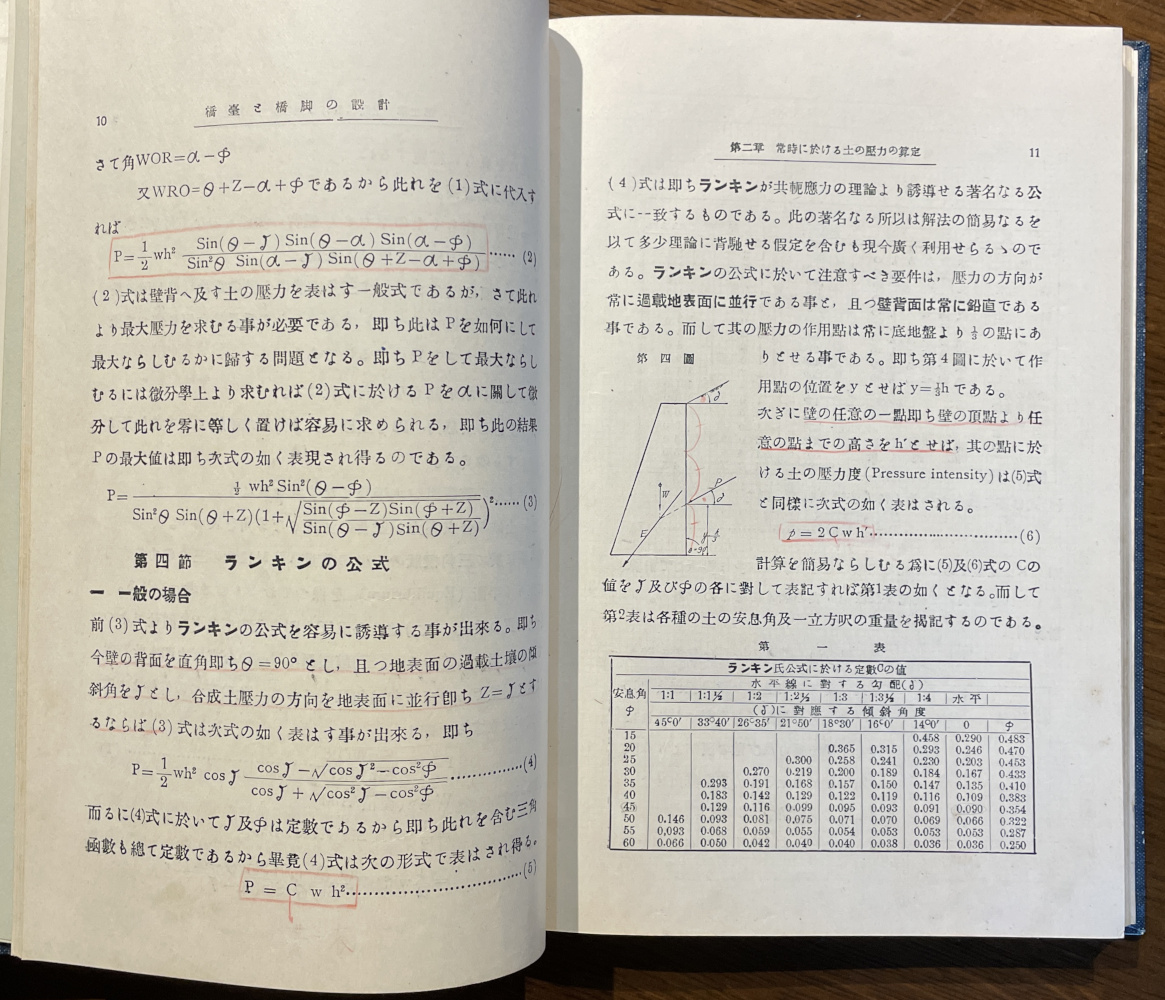 10
橋臺と橋脚の設計
さて角WOR=α−φ
又WRO=θ+Z−α+φであるから此れを(1)式に代入す
れば
P=1/2 wh² Sin(θ−δ) Sin(θ−α) Sin(α−φ) / Sin²θ Sin(α−δ) Sin(θ+Z−α+φ) ……(2)
(2)式は壁背へ及す土の壓力を表はす一般式であるが, さて此れ
より最大壓力を求むる事が必要である, 即ち此は Pを如何にして
最大ならしむるかに歸する問題となる。即ち Pをして最大ならし
むるには微分學上より求むれば(2)式に於ける Pをαに關して微
分して此れを零に等しく置けば容易に求められる, 即ち此の結果
Pの最大値は即ち次式の如く表現され得るのである。
P= ½ wh² Sin²(θ−φ) / Sin²θ Sin(θ+Z)(1+√Sin(φ−Z)Sin(φ+Z) / Sin(θ−δ)Sin(θ+Z))² ……(3)
第四節 ランキンの公式
一 一般の場合
前(3)式よりランキンの公式を容易に誘導する事が出來る。即ち
今壁の背面を直角即ちθ=90°とし, 且つ地表面の過載土壤の傾
斜角をδとし, 合成土壓力の方向を地表面に並行卽ち Z=δとす
るならば(3)式は次式の如く表はす事が出來る, 即ち
P=1/2 wh² cosδ cosδ−√cosδ²−cos²φ / cosδ+√cos²δ−cos²φ …………(4)
而るに(4)式に於いてδ及φは定數であるから即ち此れを含む三角
函數も總て定數であるから畢竟(4)式は次の形式で表はされ得る。
P = C w h²……………………(5)
第二章 常時に於ける土の壓力の算定
11
(4)式は即ちランキンが共軛應力の理論より誘導せる著名なる公
式に一致するものである。此の著名なる所以は解法の簡易なるを
以て多少理論に背馳せる假定を含むも現今廣く利用せらるゝので
ある。ランキンの公式に於いて注意すべき要件は, 壓力の方向が
常に過載地表面に並行である事と, 且つ壁背面は常に鉛直である
事である。而して其の壓力の作用點は常に底地盤より⅓の點にあ
りとせる事である。即ち第4圖に於いて作
用點の位置をyとせば y=⅓hである。
次ぎに壁の任意の一點即ち壁の頂點より任
意の點までの高さをh′とせば, 其の點に於
ける土の壓力度(Pressure intensity)は(5)式
と同樣に次式の如く表はされる。
p=2Cwh′……………………(6)
第四圖
δ
P
δ
W
E
θ=90°
計算を簡易ならしむる爲に(5)及(6)式のCの
値をδ及びφの各に對して表記すれば第1表の如くとなる。而して
第2表は各種の土の安息角及一立方呎の重量を揭記するのである。
第一表
ランキン氏公式に於ける定數Cの値
安息角 φ
水平線に對する勾配(δ)
1:1 1:1½ 1:2 1:2½ 1:3 1:3½ 1:4 水平
(δ)に對應する傾斜角度
45°0′ 33°40′ 26°35′ 21°50′ 18°30′ 16°0′ 14°0′ 0 φ
15 0.458 0.290 0.483
20 0.365 0.315 0.293 0.246 0.470
25 0.300 0.258 0.241 0.230 0.203 0.453
30 0.270 0.219 0.200 0.189 0.184 0.167 0.433
35 0.293 0.191 0.168 0.157 0.150 0.147 0.135 0.410
40 0.183 0.142 0.129 0.122 0.119 0.116 0.109 0.383
45 0.129 0.116 0.099 0.095 0.093 0.091 0.090 0.354
50 0.146 0.093 0.081 0.075 0.071 0.070 0.069 0.066 0.322
55 0.093 0.068 0.059 0.055 0.054 0.053 0.053 0.053 0.287
60 0.066 0.050 0.042 0.040 0.040 0.038 0.036 0.036 0.250